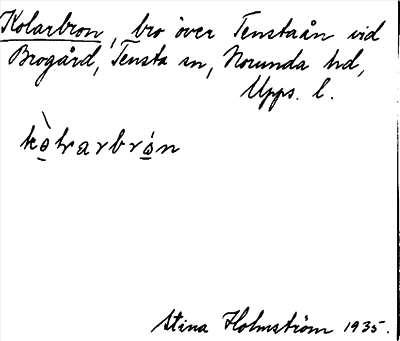 Kolarbron, bro över Tenstaån vid
Brogård, Tensta sn, Norunda hd,
Upps. l.
Stina Holmström 1935.